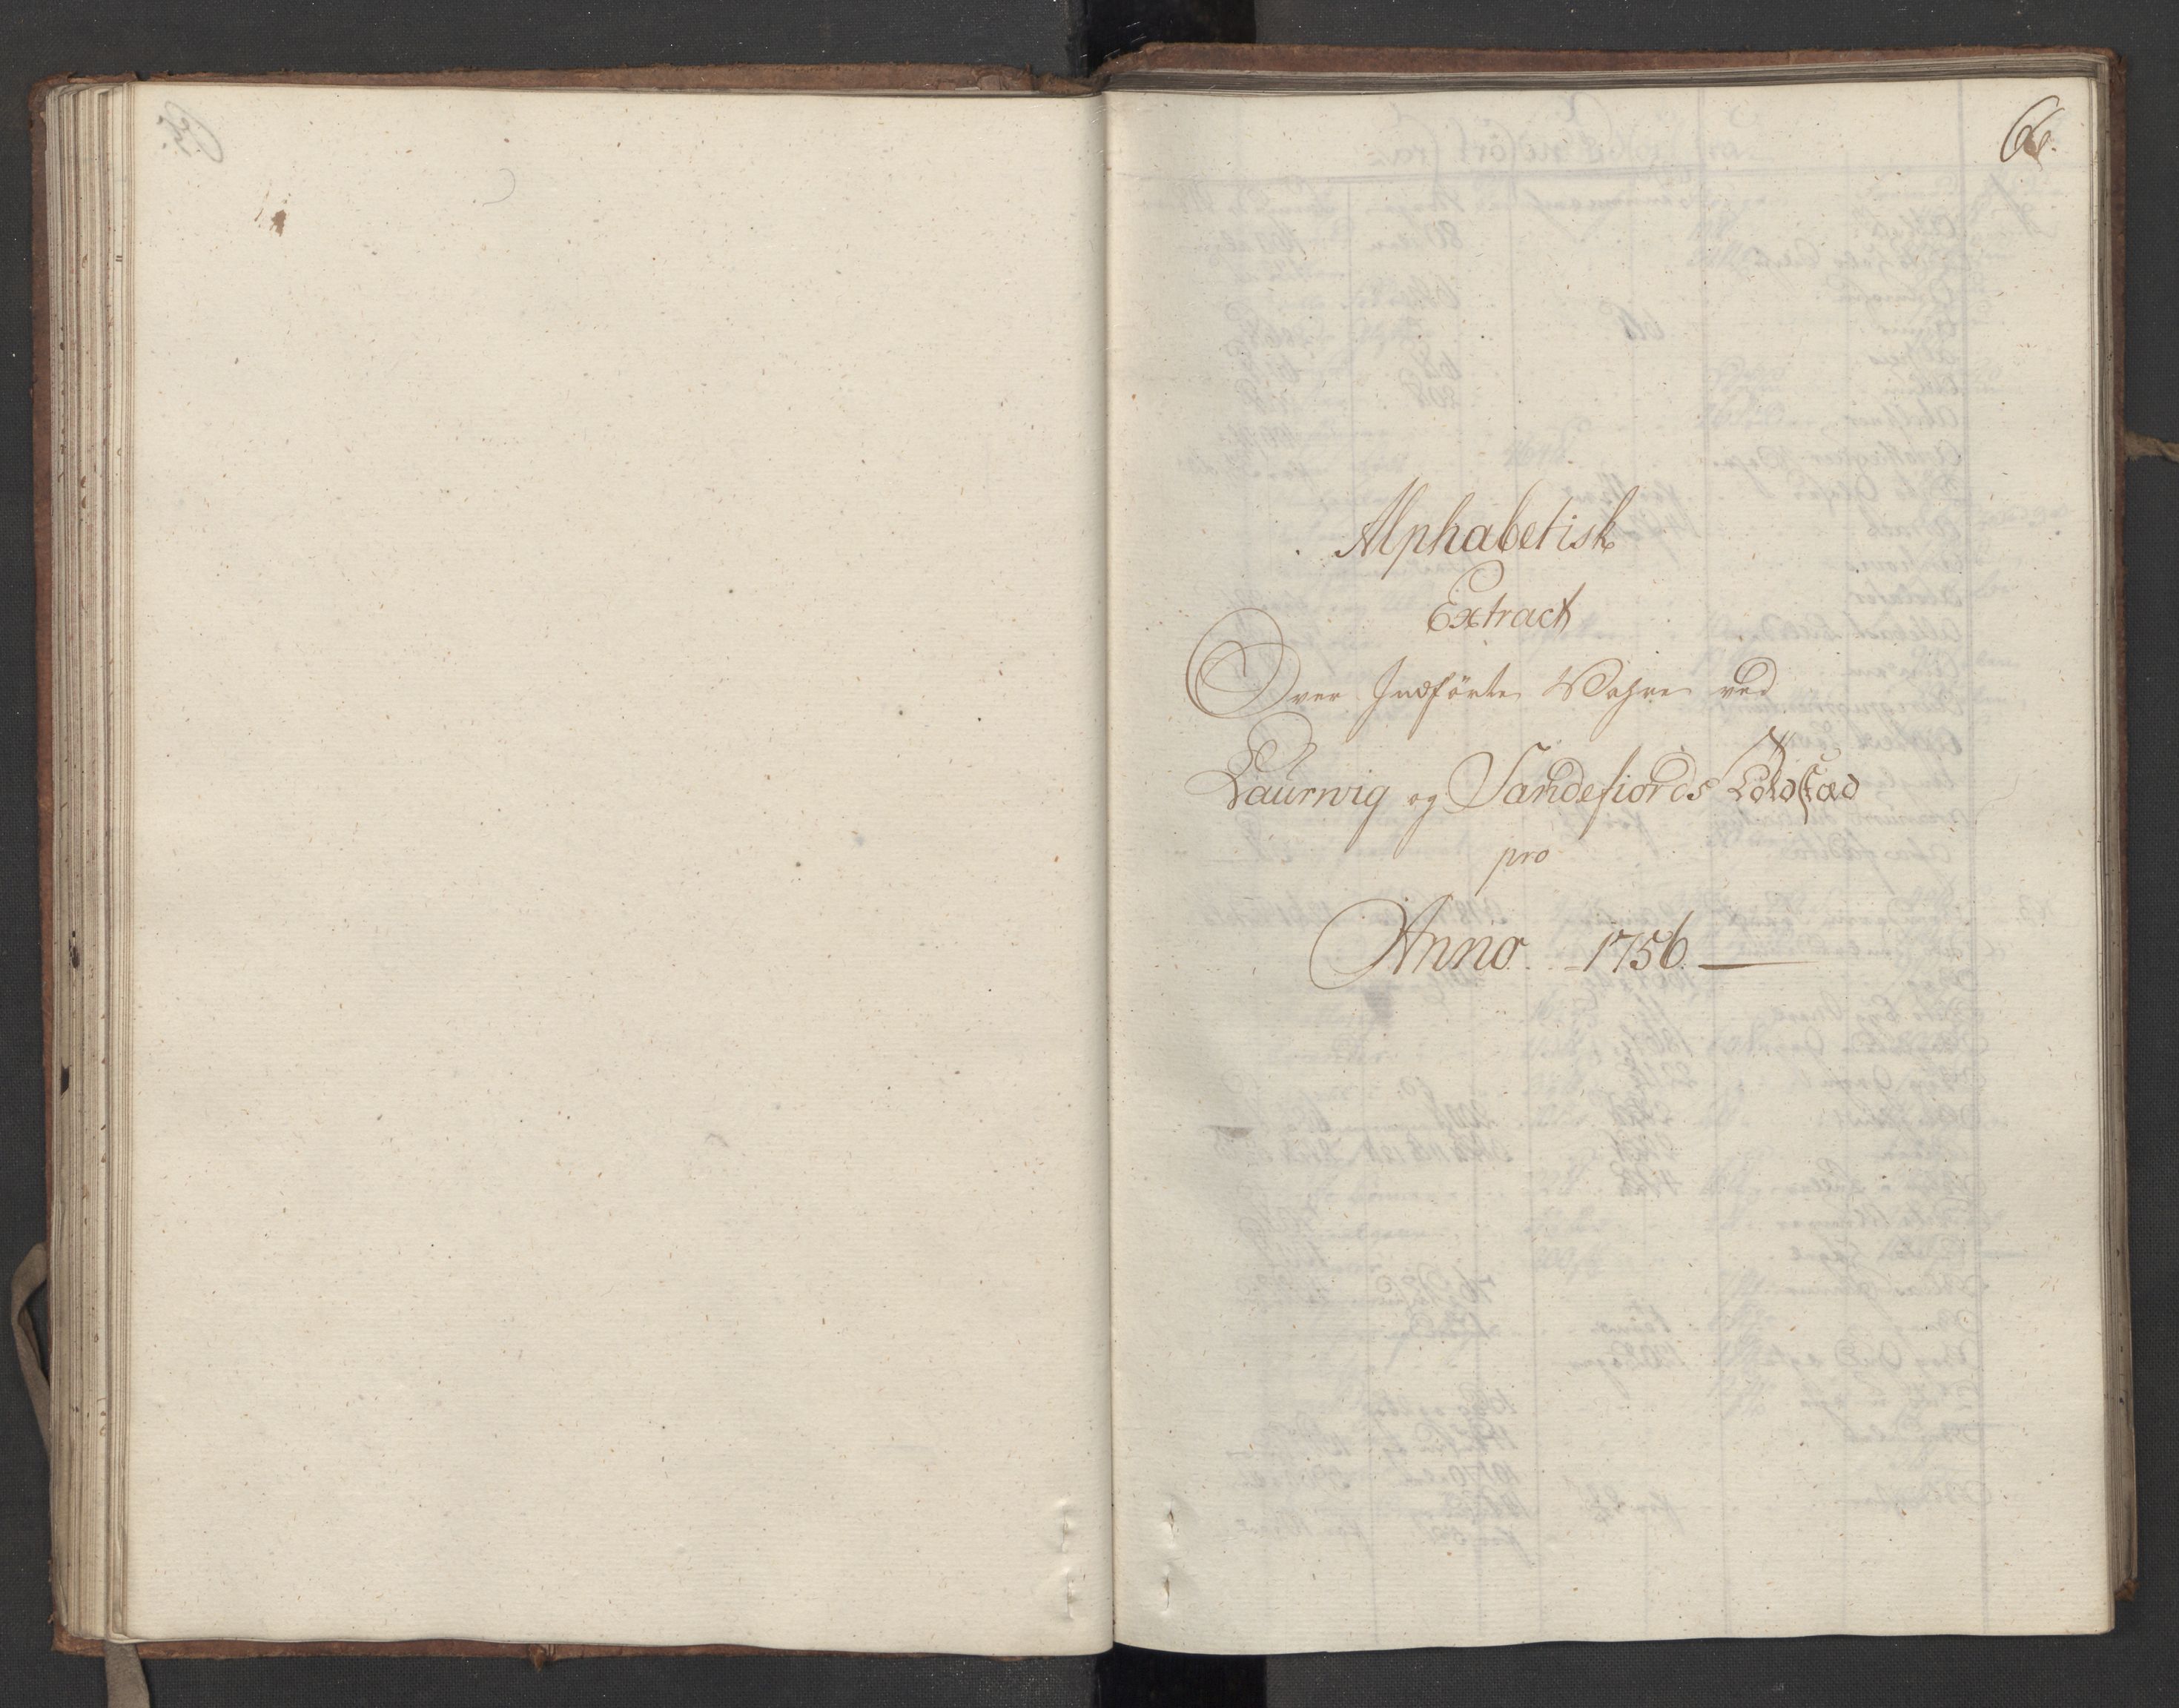 66.
Alphabetisk
Extract
Over Indførte Vahre ved
Laurvig og Sandefiords Toldstæd
pro
Anno 1756.